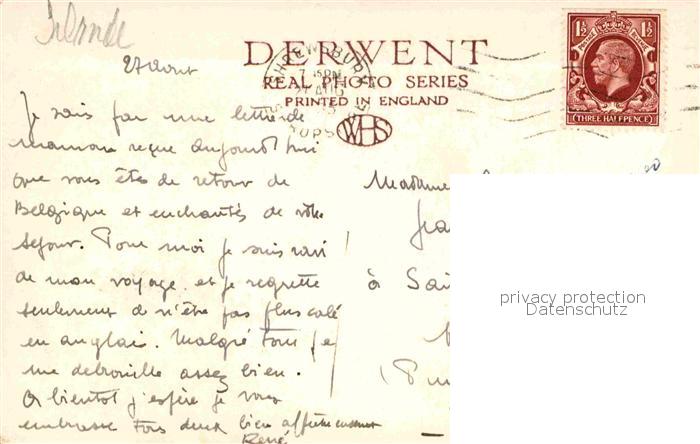 Irlande
27 Aout
DERWENT
REAL PHOTO SERIES
PRINTED IN ENGLAND
WHS
SHREWSBURY
7 15 PM
27 AUG
1½ 1½
POSTAGE REVENUE
THREE HALFPENCE
Je sais par une lettre de
maman reçue aujourd'hui
que vous êtes de retour de
Belgique et enchantés de votre
sejour. Pour moi je suis ravi
de mon voyage et je regrette
seulement de n'être pas plus calé
en anglais. Malgré tout je
me debrouille assez bien.
A bientot j'espère je vous
embrasse tous deux bien affectueusement
René
Madame
à Sai
privacy protection
Datenschutz